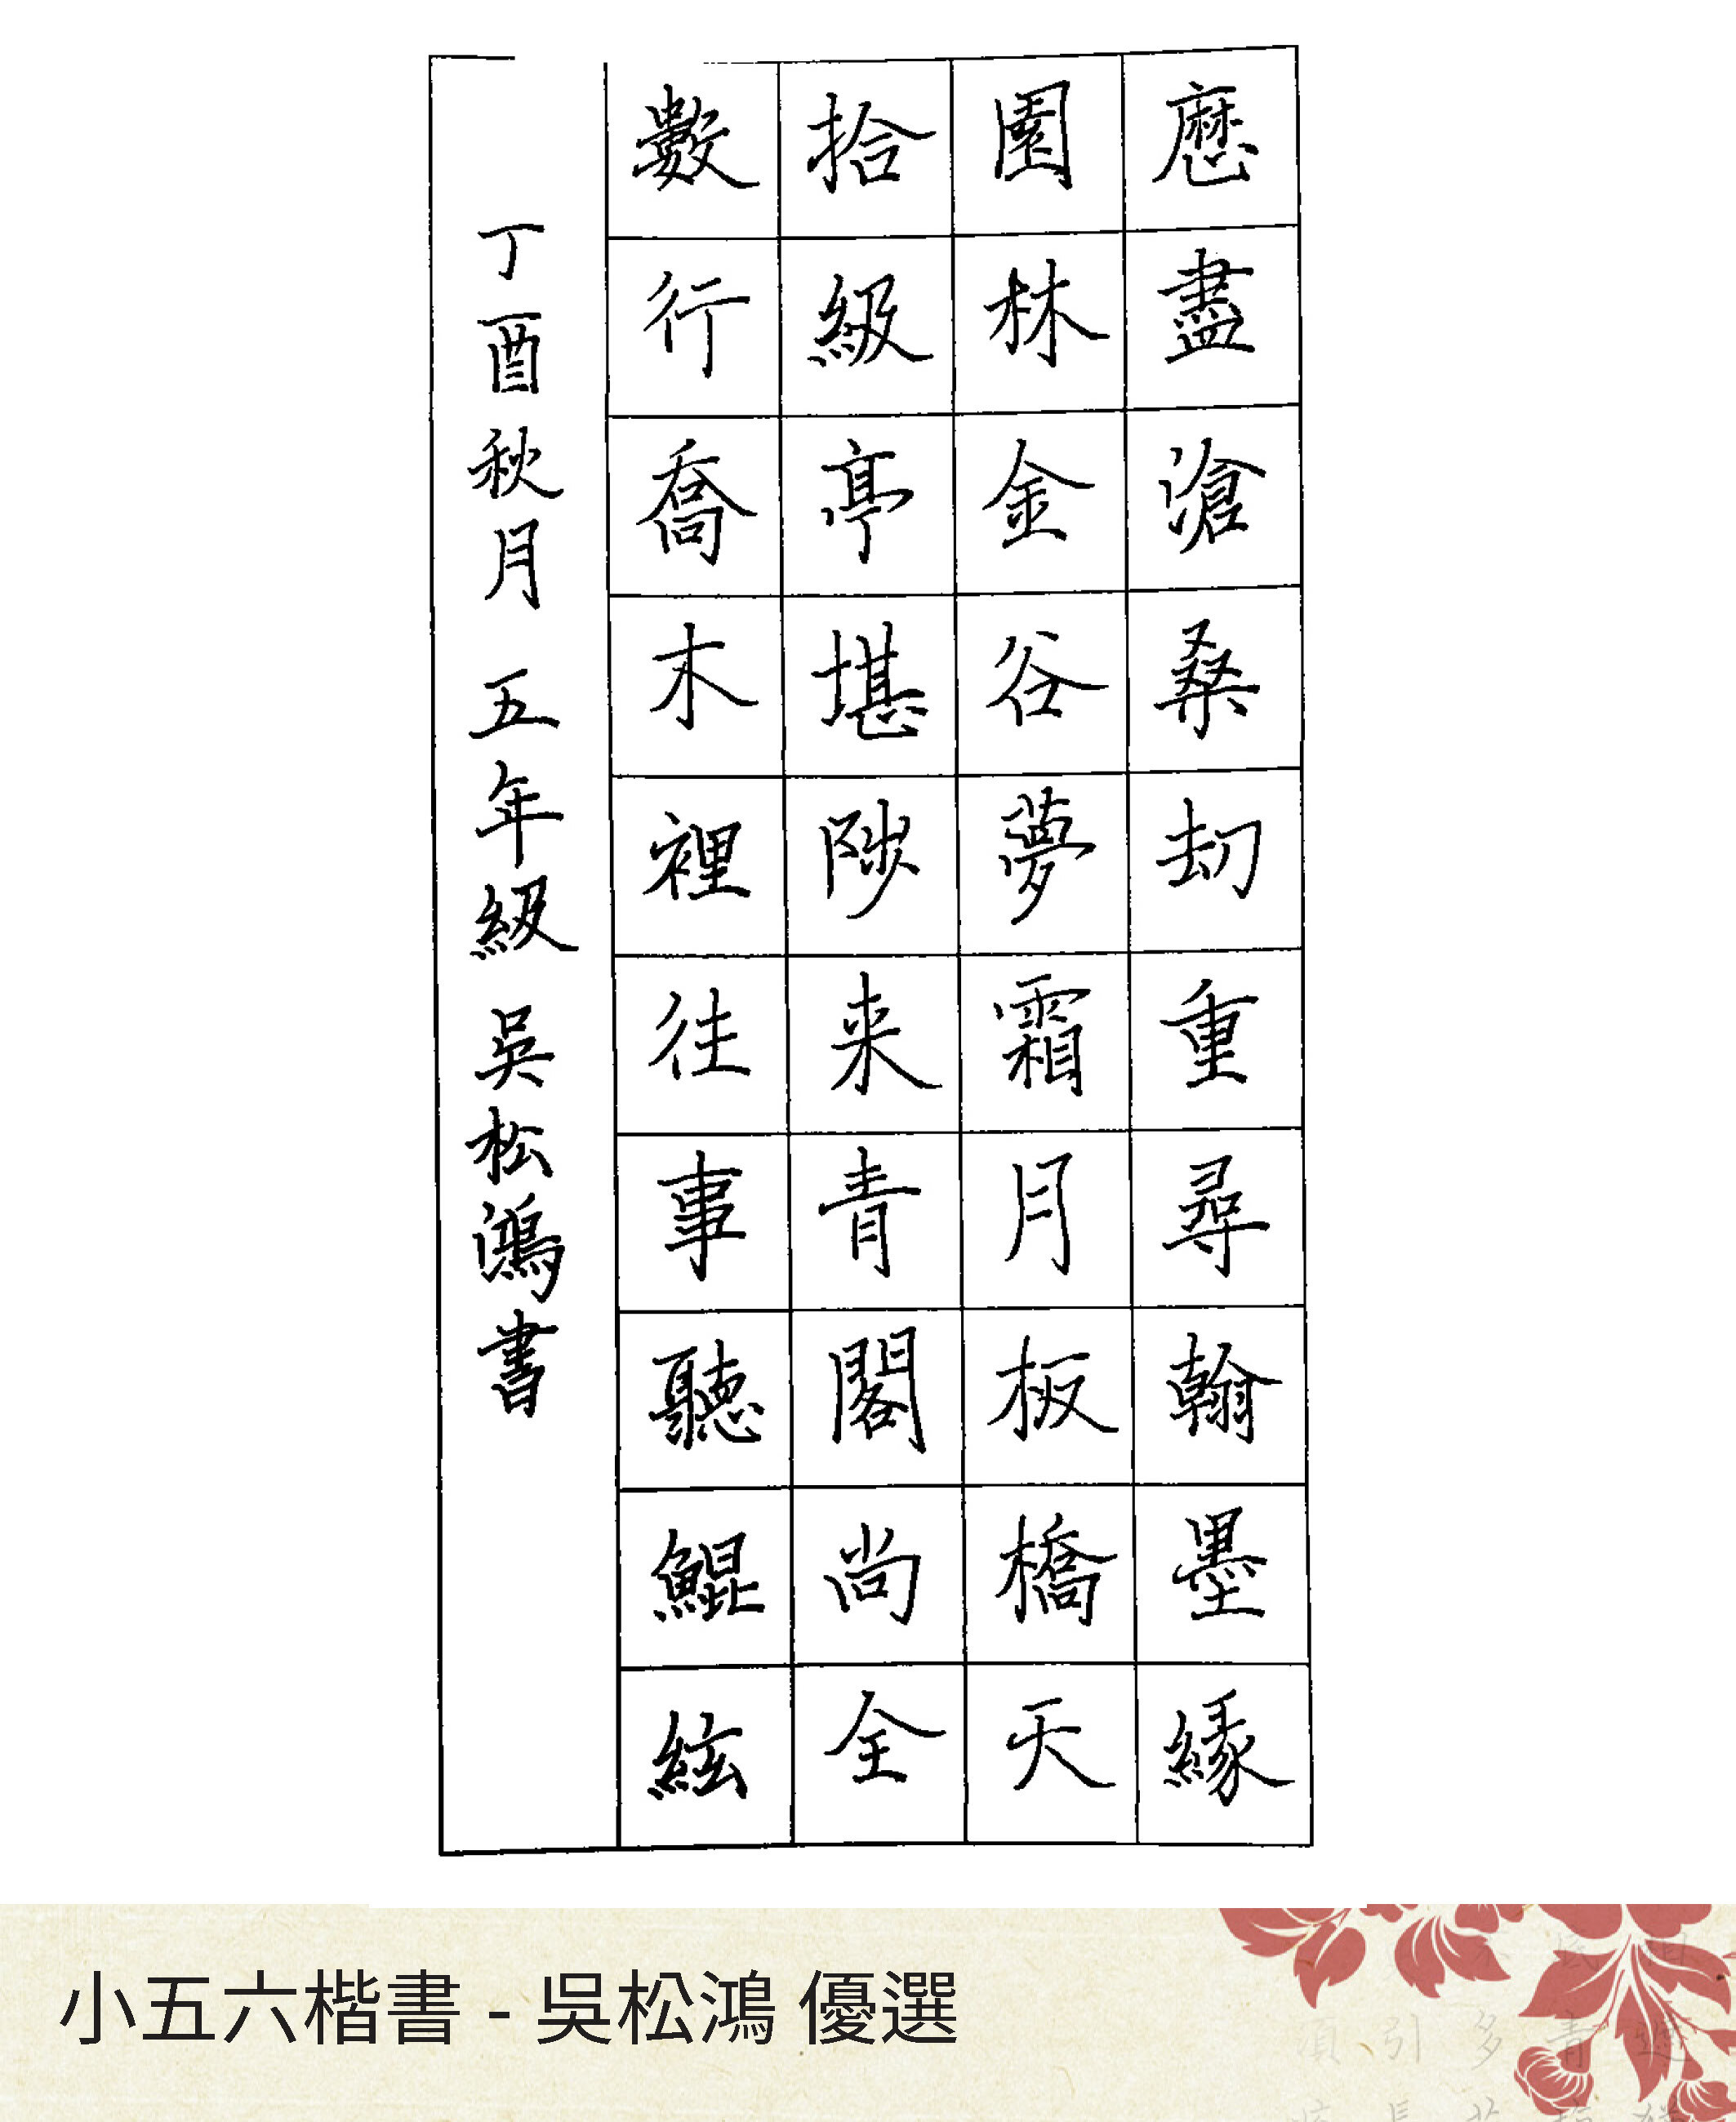 歷盡滄桑劫重尋翰墨緣
園林金谷夢霜月板橋天
拾級亭堪陟来青閣尚全
數行喬木裡往事聽鯤絃
丁酉秋月 五年級 吳松鴻書
小五六楷書 - 吳松鴻 優選